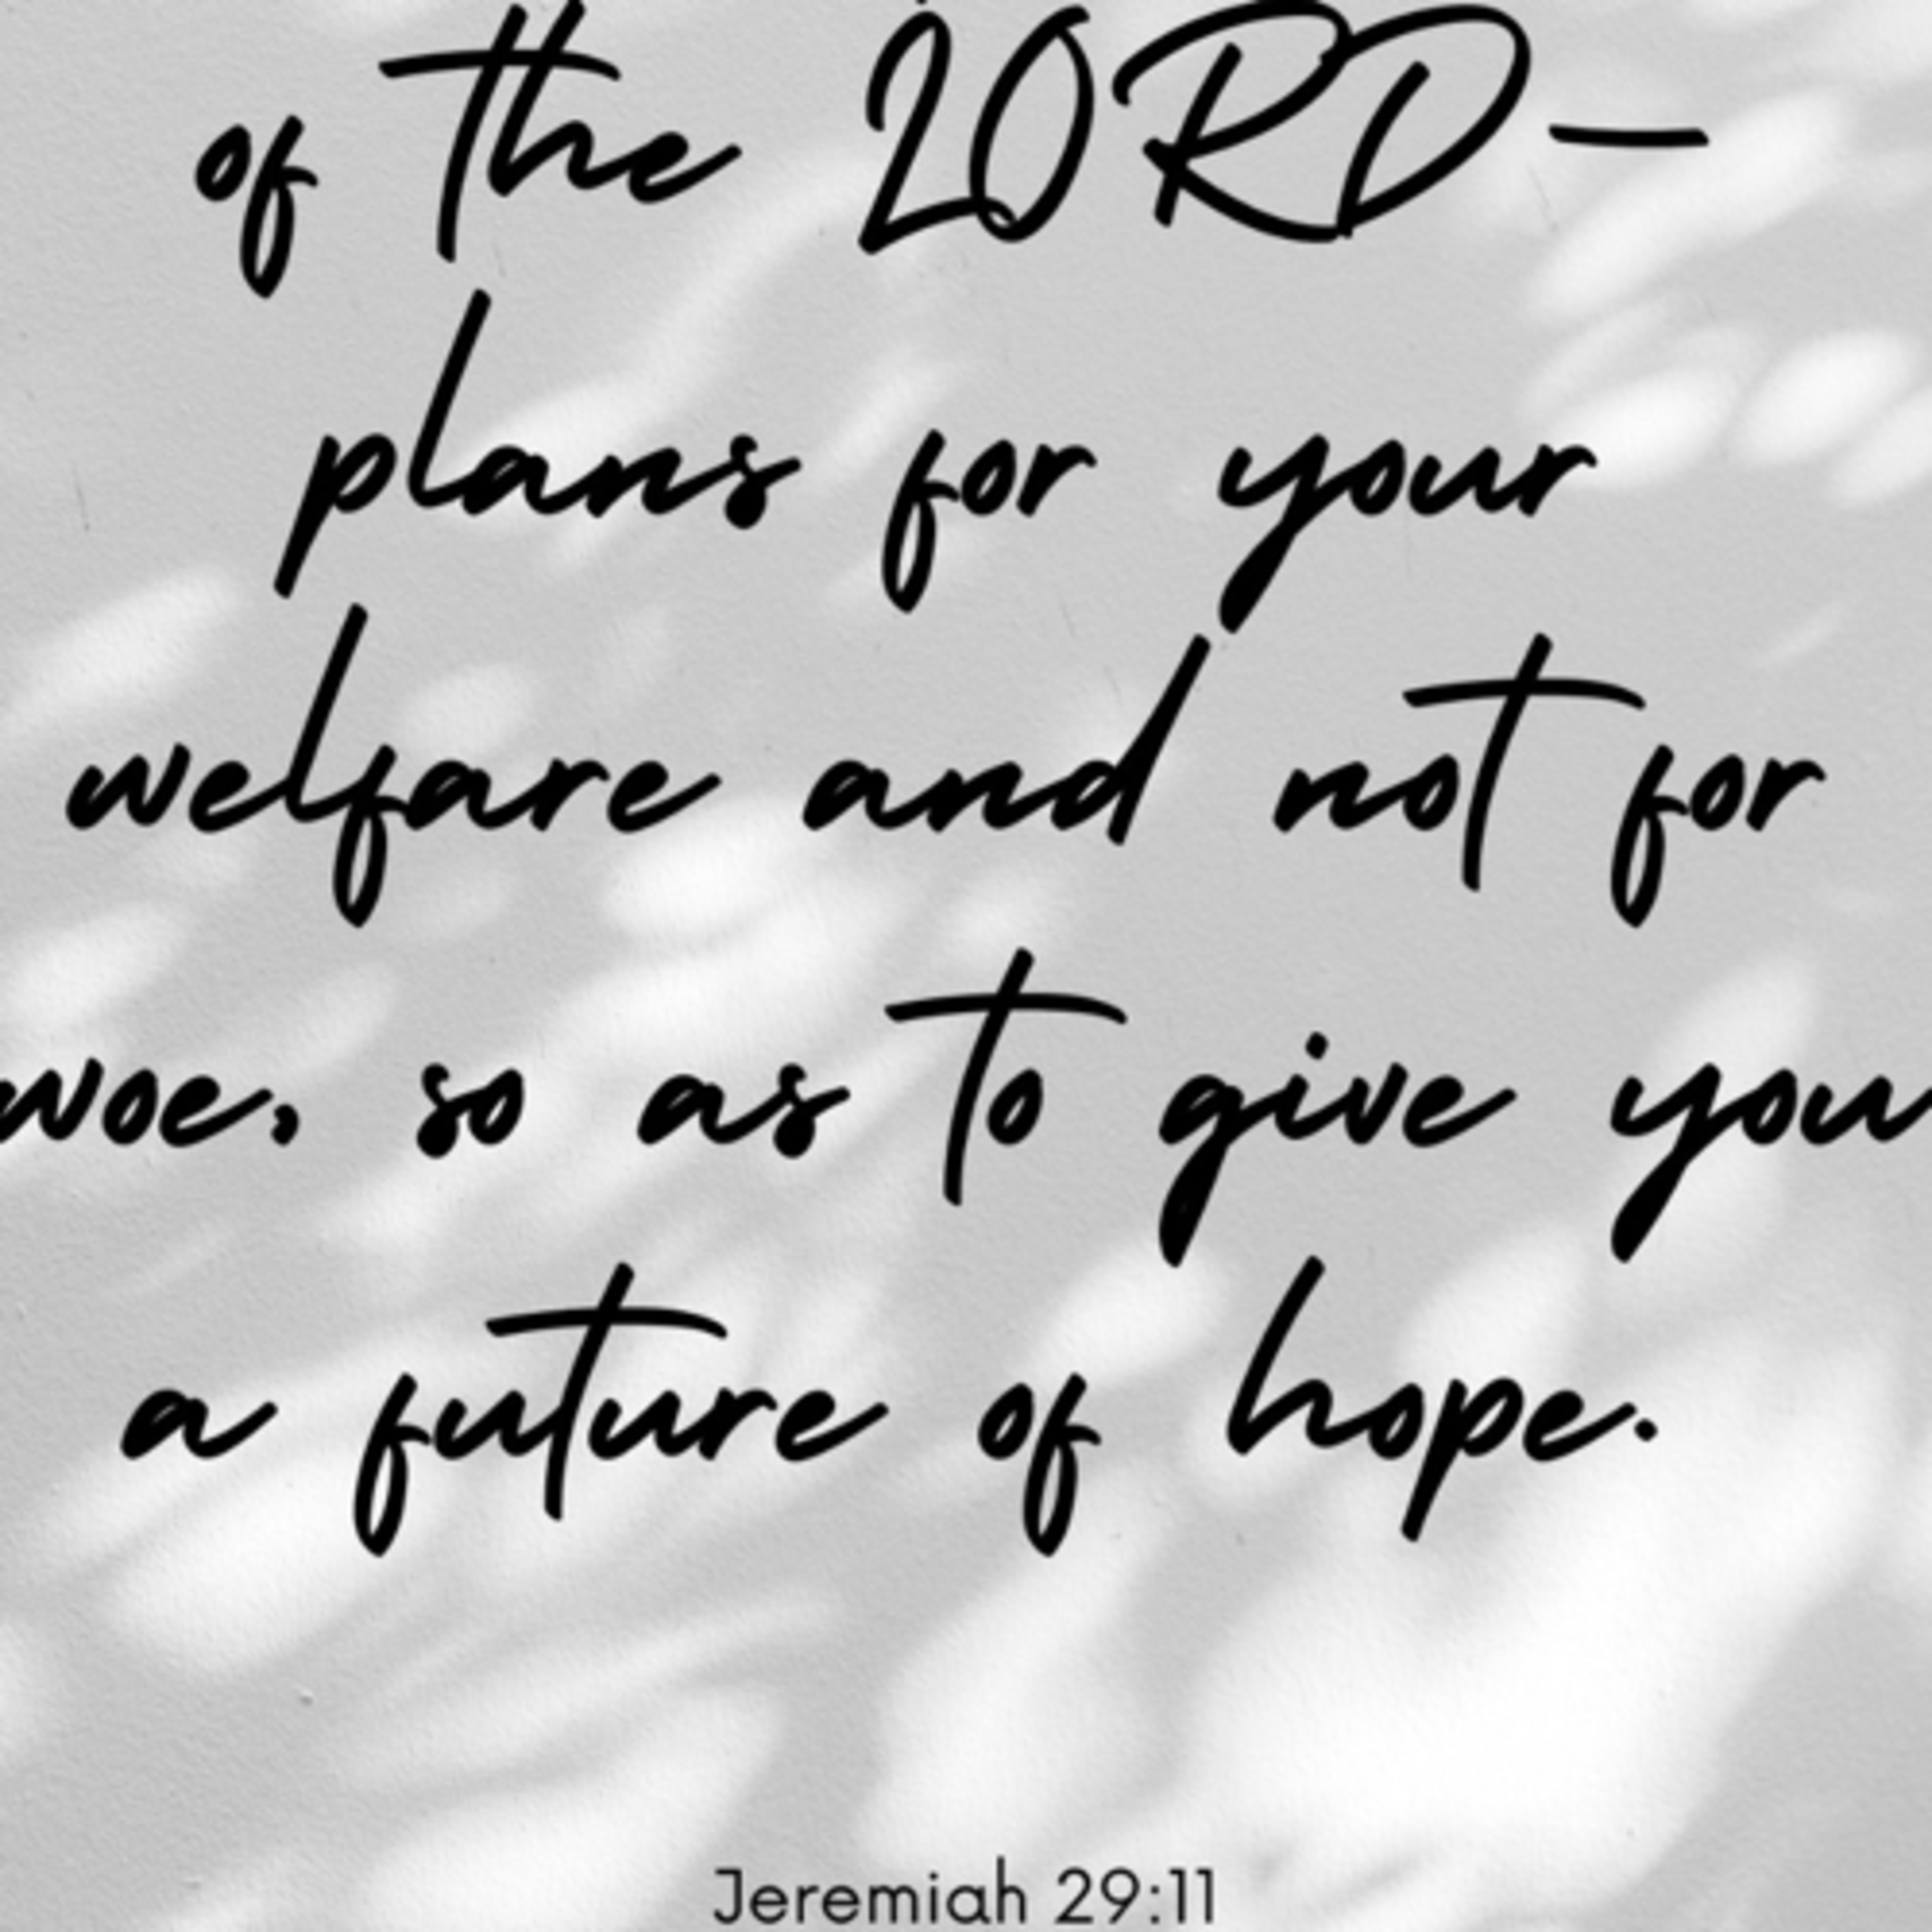 of the LORD—
plans for your
welfare and not for
woe, so as to give you
a future of hope.
Jeremiah 29:11